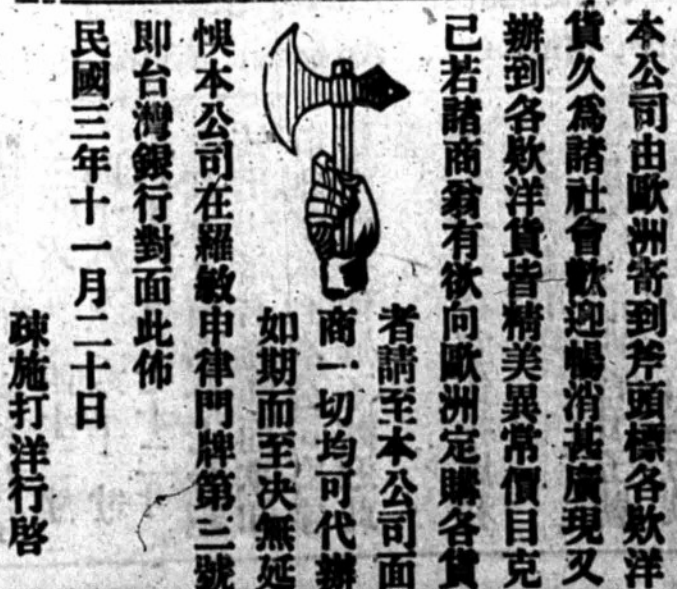 本公司由歐洲寄到斧頭標各欵洋
貨久爲諸社會歡迎暢消甚廣現又
辦到各欵洋貨皆精美異常價目克
己若諸商翁有欲向歐洲定購各貨
者請至本公司面
商一切均可代辦
如期而至决無延
悞本公司在羅敏申律門牌第三號
即台灣銀行對面此佈
民國三年十一月二十日
疎施打洋行啓